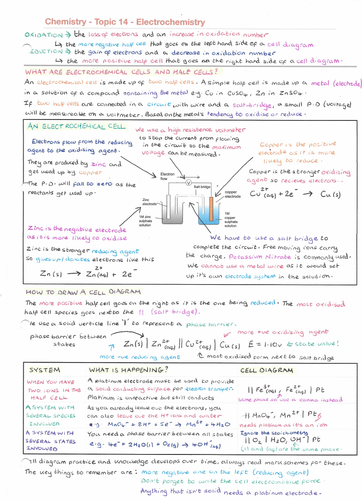 Chemistry - Topic 14 - Electrochemistry
OXIDATION → the loss of electrons and an increase in oxidation number
↳ the more negative half cell that goes on the left hand side of a cell diagram
REDUCTION → the gain of electrons and a decrease in oxidation number
↳ the more positive half cell that goes on the right hand side of a cell diagram.
WHAT ARE ELECTROCHEMICAL CELLS AND HALF CELLS?
An electrochemical cell is made up of two half cells. A simple half cell is made up a metal (electrode)
in a solution of a compound containing the metal e.g. Cu in CuSO4, Zn in ZnSO4.
If two half cells are connected in a circuit with wire and a salt-bridge, a small P.D (voltage)
will be measurable on a voltmeter. Based on the metals tendency to oxidise or reduce.
AN ELECTROCHEMICAL CELL
We use a high resistance voltmeter
to stop the current from flowing
in the circuit so the maximum
voltage can be measured.
Electrons flow from the reducing
agent to the oxidising agent.
They are produced by zinc and
get used up by copper
The P.D will fall to zero as the
reactants get used up.
Copper is the positive
electrode as it is more
likely to reduce.
Copper is the stronger oxidising
agent so recieves electrons.
Cu2+(aq) + 2e- → Cu(s)
Electron flow
Voltmeter
Salt bridge
Zinc electrode
copper electrode
1M zinc sulphate solution
1M copper sulphate solution
Zinc is the negative electrode
as it is more likely to oxidise
Zinc is the stronger reducing agent
so gives up/produces electrons like this
Zn(s) → Zn2+(aq) + 2e-
We have to use a salt bridge to
complete the circuit. Free moving ions carry
the charge. Potassium Nitrate is commonly used.
We cannot use a metal wire as it would set
up it's own electrode system in the solution.
HOW TO DRAW A CELL DIAGRAM
The more positive half cell goes on the right as it is the one being reduced. The most oxidised
half cell species goes next to the || (salt bridge).
We use a solid vertical line '|' to represent a phase barrier.
phase barrier between
states
more +ve oxidising agent
Zn(s) | Zn2+(aq) || Cu2+(aq) | Cu(s) E = 1.10V
state value!
more -ve reducing agent
most oxidised form next to salt bridge
SYSTEM
WHAT IS HAPPENING?
CELL DIAGRAM
WHEN YOU HAVE
TWO IONS IN THE
HALF CELL
A platinum electrode must be used to provide
a solid conducting surface for electron transfer.
Platinum is unreactive but still conducts
|| Fe3+(aq), Fe2+(aq) | Pt
Same phase so use a comma instead
A SYSTEM WITH
SEVERAL SPECIES
INVOLVED
As you already have out the electrons you
can also leave out the H+ ions and water
e.g. MnO4- + 8H+ + 5e- → Mn2+ + 4H2O
|| MnO4-, Mn2+ | Pt
needs platinum as it's an ion
A SYSTEM WITH
SEVERAL STATES
INVOLVED
You need a phase barrier between all states
e.g. 4e- + 2H2O(l) + O2(g) → 4OH-(aq)
Ignore the stoichiometry
|| O2 | H2O, OH- | Pt
Cell diagram practice and knowledge develops over time, always read mark schemes for these.
The key things to remember are: more negative one on the left (reducing agent)
Don't forget to write the cell electromotive force
Anything that isn't solid needs a platinum electrode.